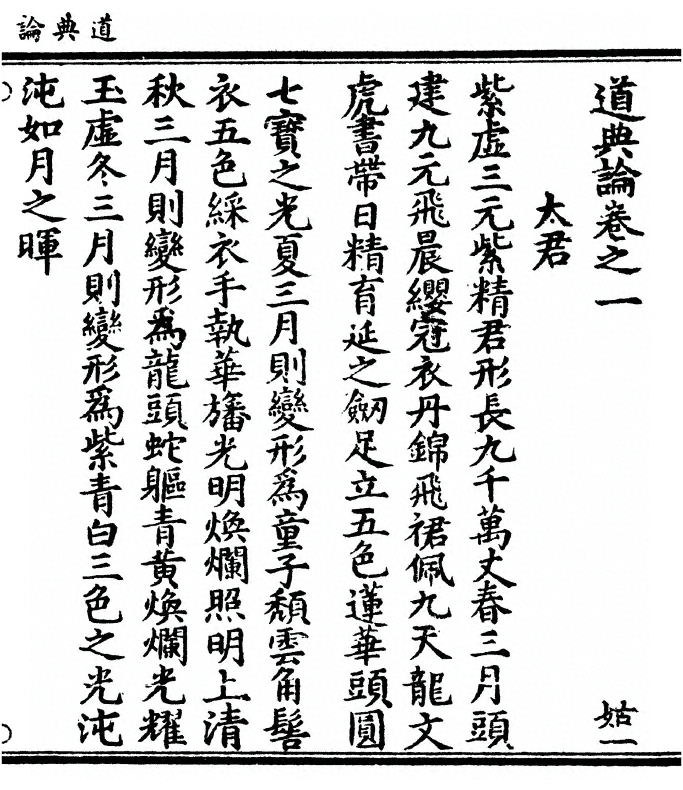 道典論
道典論卷之一
姑一
太君
紫虛三元紫精君形長九千萬丈春三月頭
建九元飛晨纓冠衣丹錦飛裙佩九天龍文
虎書帶日精育延之劒足立五色蓮華頭圓
七寶之光夏三月則變形爲童子頽雲角髻
衣五色綵衣手執華旛光明煥爛照明上清
秋三月則變形爲龍頭蛇軀青黃煥爛光耀
玉虛冬三月則變形爲紫青白三色之光沌
沌如月之暉